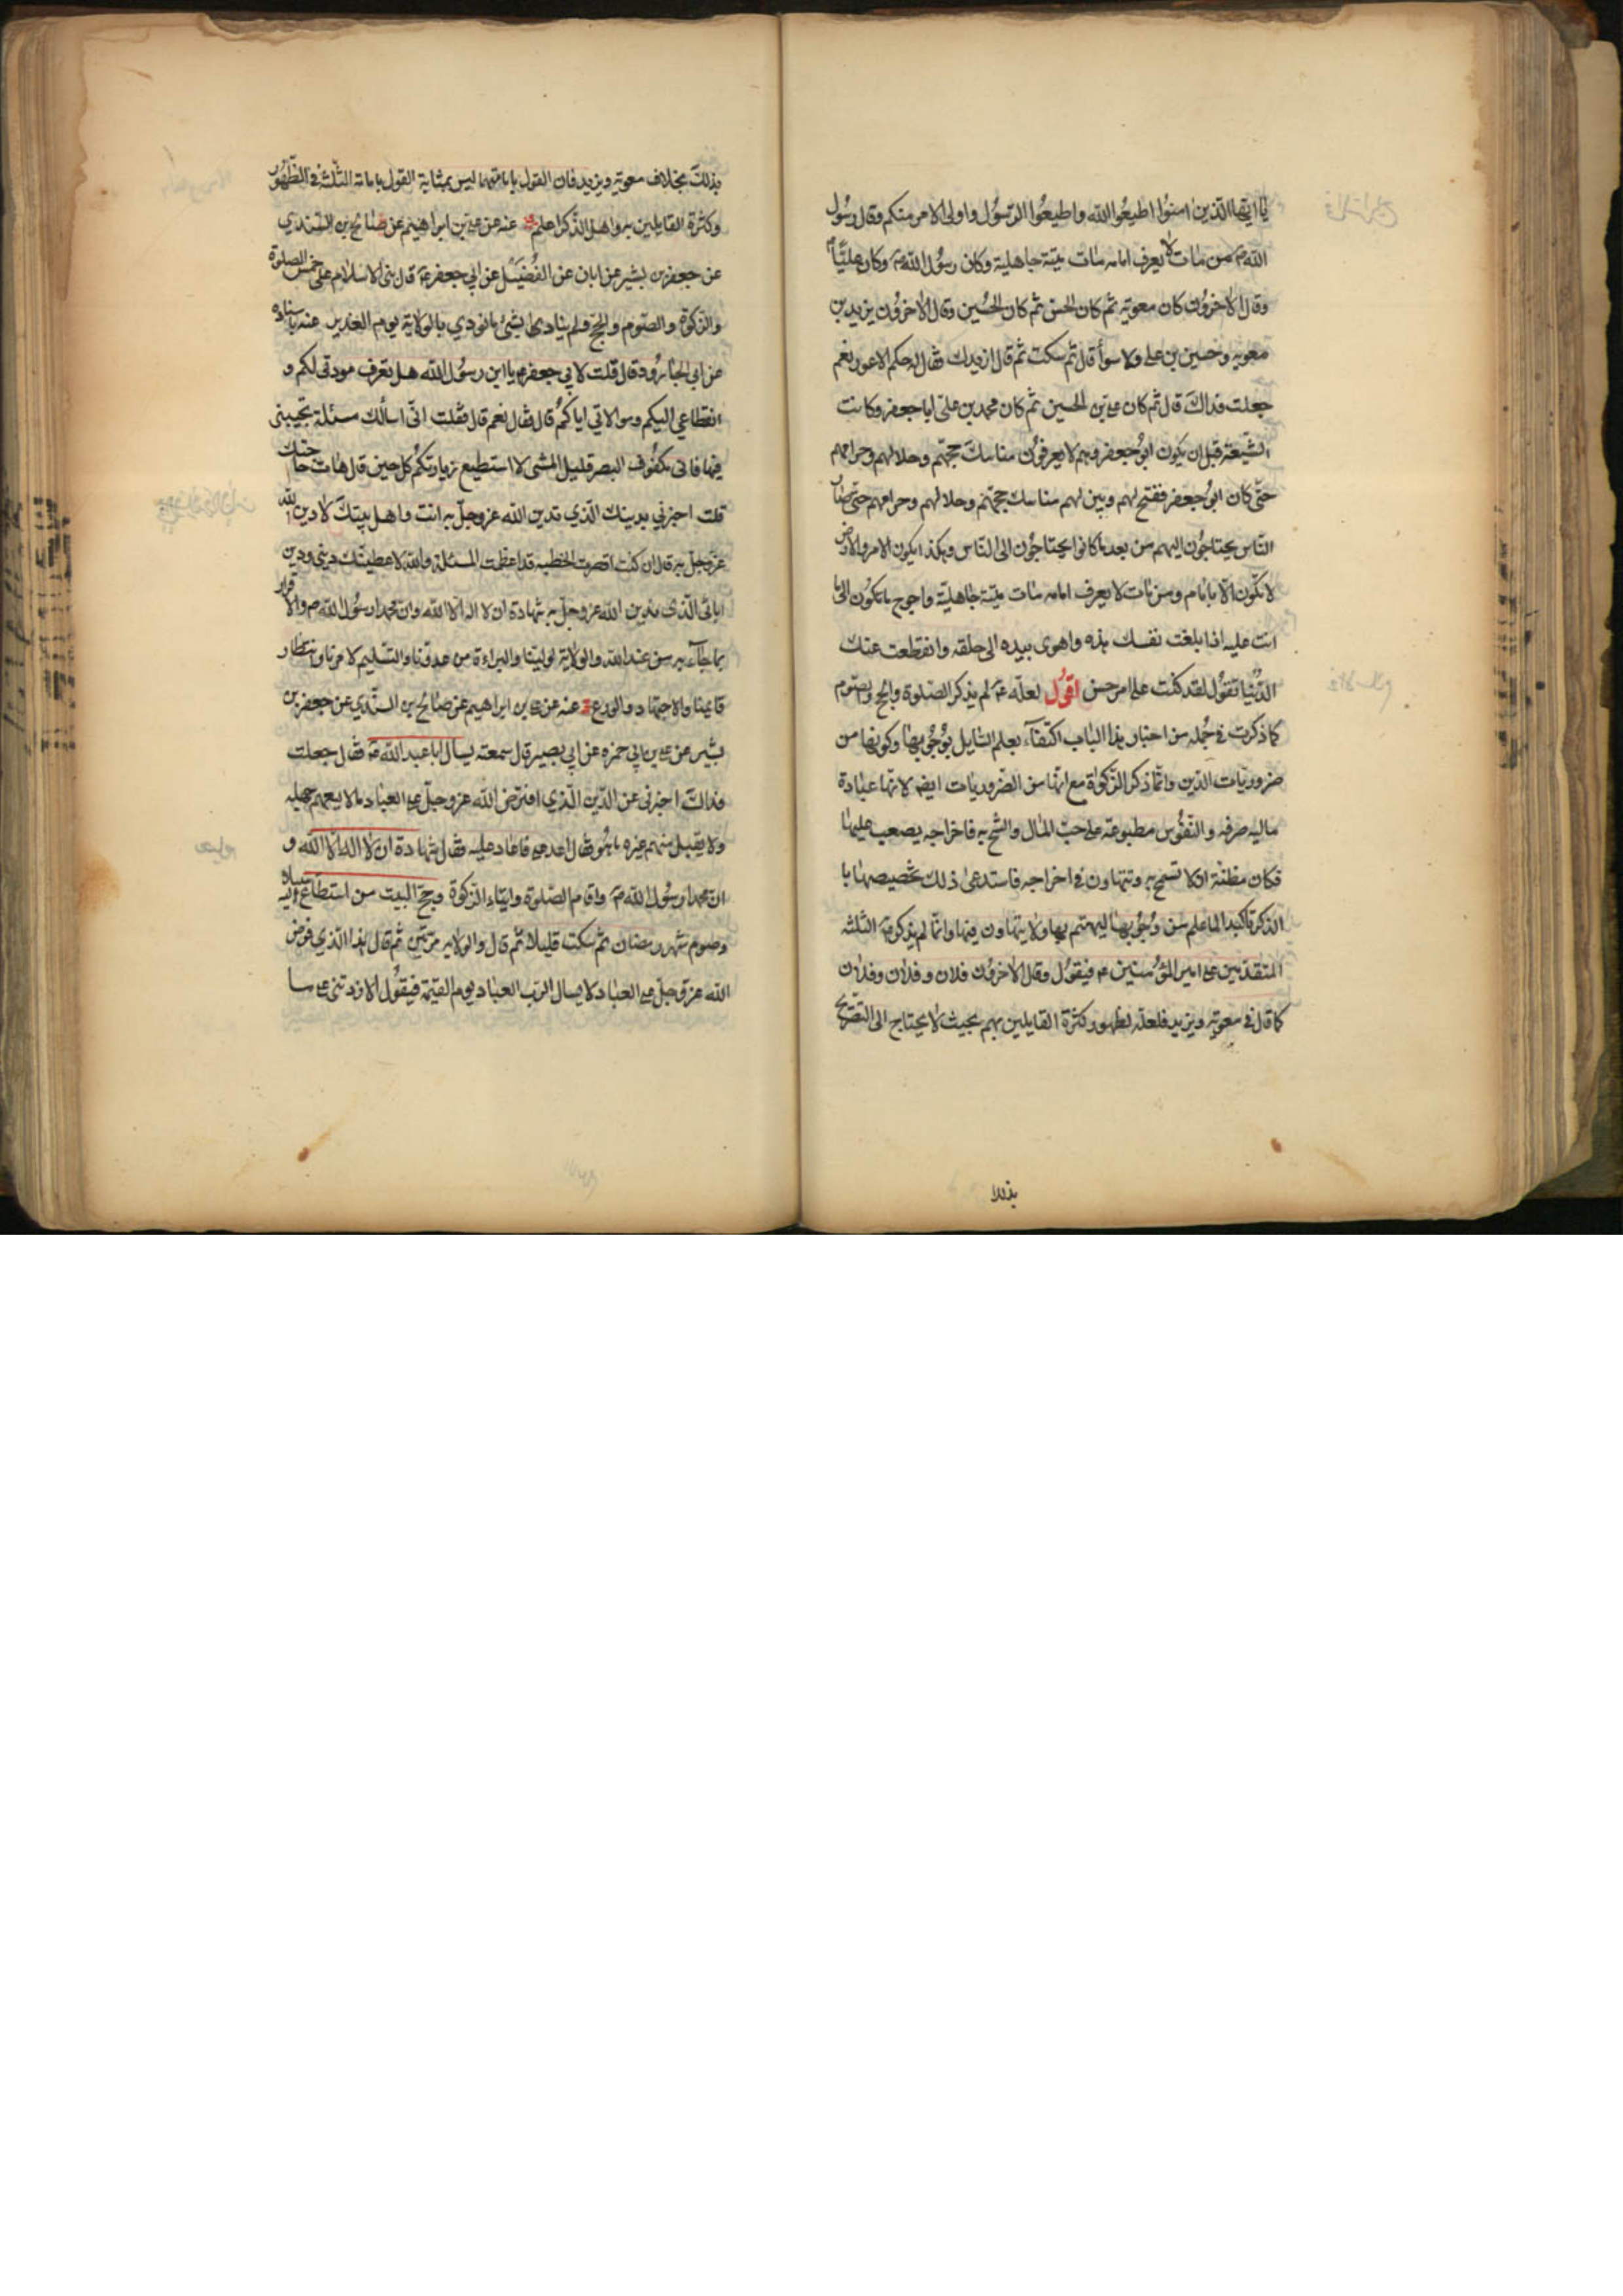 يا ايها الذين امنوا اطيعوا الله واطيعوا الرسول واولى الامر منكم وقال رسول
اللهص من مات لا يعرف امامه مات ميتة جاهلية وكان رسول اللهص وكان عليّاع
وقال الاخرون كان معوية ثم كان الحسن ثم كان الحسين وقال الاخرون يزيد بن
معوية وحسين بن على ولا سوأ قال ثم سكت ثم قال ازيدك فقال له حكم الاعور نعم
جعلت فداك قال ثم كان على بن الحسين ثم كان محمد بن على ابا جعفر وكانت
الشيعة قبل ان يكون ابو جعفر وهم لا يعرفون مناسك حجهم وحلالهم وحرامهم
حتى كان ابو جعفر ففتح لهم وبين لهم مناسك حجهم وحلالهم وحرامهم حتى صار
الناس يحتاجون اليهم من بعد ما كانوا يحتاجون الى الناس وهكذا يكون الامر والارض
لا تكون الا بامام ومن مات لا يعرف امامه مات ميتة جاهلية واحوج ما تكون الى ما
انت عليه اذا بلغت نفسك هذه واهوى بيده الى حلقه وانقطعت عنك
الدنيا تقول لقد كنت على امر حسن اقول لعله ع لم يذكر الصلوة والحج والصوم
كما ذكرت في جمله من اخبار هذا الباب اكتفآء بعلم السايل بوجوبها وكونها من
ضروريات الدين وانما ذكر الزكوة مع انها من الضروريات ايضا لانها عبادة
ماليه صرفه والنفوس مطبوعة على حب المال والشح به فاخراجه يصعب عليها
فكان مظنة ان لا تسمح به وتتهاون في اخراجه فاستدعى ذلك تخصيصها با
الذكر تاكيدا لما علم من وجوبها ليهتم بها ولا يتهاون فيها وانما لم يذكر ع الثلثه
المتقدمين على امير المؤمنين ع فيقول وقال الاخرون فلان وفلان وفلان
كما قال في معوية ويزيد فلعله لظهور كثرة القايلين بهم بحيث لا يحتاج الى التصريح
بذلك
بذلك بخلاف معوية ويزيد فان القول بامامتهما ليس بمثابة القول بامامة الثلثة في الظهور
وكثرة القايلين به واهل الذكر اعلم عنه عن على بن ابراهيم عن صالح بن السندي
عن جعفر بن بشير عن ابان عن الفضيل عن ابي جعفر ع قال بنى الاسلام على خمس الصلوة
والزكوة والصوم والحج ولم يناد بشئ ما نودي بالولاية يوم الغدير عنه باسناده
عن ابي الجارود قال قلت لابي جعفر ع يا ابن رسول الله هل تعرف مودتى لكم و
انقطاعي اليكم وموالاتي اياكم قال فقال نعم قال فقلت انى اسألك مسئلة تجيبنى
فيها فانى مكفوف البصر قليل المشى لا استطيع زيارتكم كل حين قال هات حاجتك
قلت اخبرني بدينك الذي تدين الله عزوجل به انت واهل بيتك لادين الله
عزوجل به قال ان كنت اقصرت الخطبه قد اعظمت المسئلة والله لاعطينك دينى ودين
ابائى الذى ندين الله عزوجل به شهادة ان لا اله الا الله وان محمدا رسول اللهص والاقرار
بما جاء به من عند الله والولاية لولينا والبراءة من عدونا والتسليم لامرنا وانتظار
قايمنا والاجتهاد والورع عنه عن على بن ابراهيم عن صالح بن السندي عن جعفر بن
بشير عن على بن ابي حمزه عن ابي بصير قال سمعته يسال ابا عبد اللهع فقال جعلت
فداك اخبرنى عن الدين الذي افترض الله عزوجل على العباد ما لا يسعهم جهله
ولا يقبل منهم غيره ما هو فقال اعد على فاعاد عليه فقال شهادة ان لا اله الا الله و
ان محمدا رسول اللهص واقام الصلوة وايتاء الزكوة وحج البيت من استطاع اليه سبيلا
وصوم شهر رمضان ثم سكت قليلا ثم قال والولايه مرتين ثم قال هذا الذي فرض
الله عزوجل على العباد لا يسال الرب العباد يوم القيمة فيقول الا زدتنى على ما